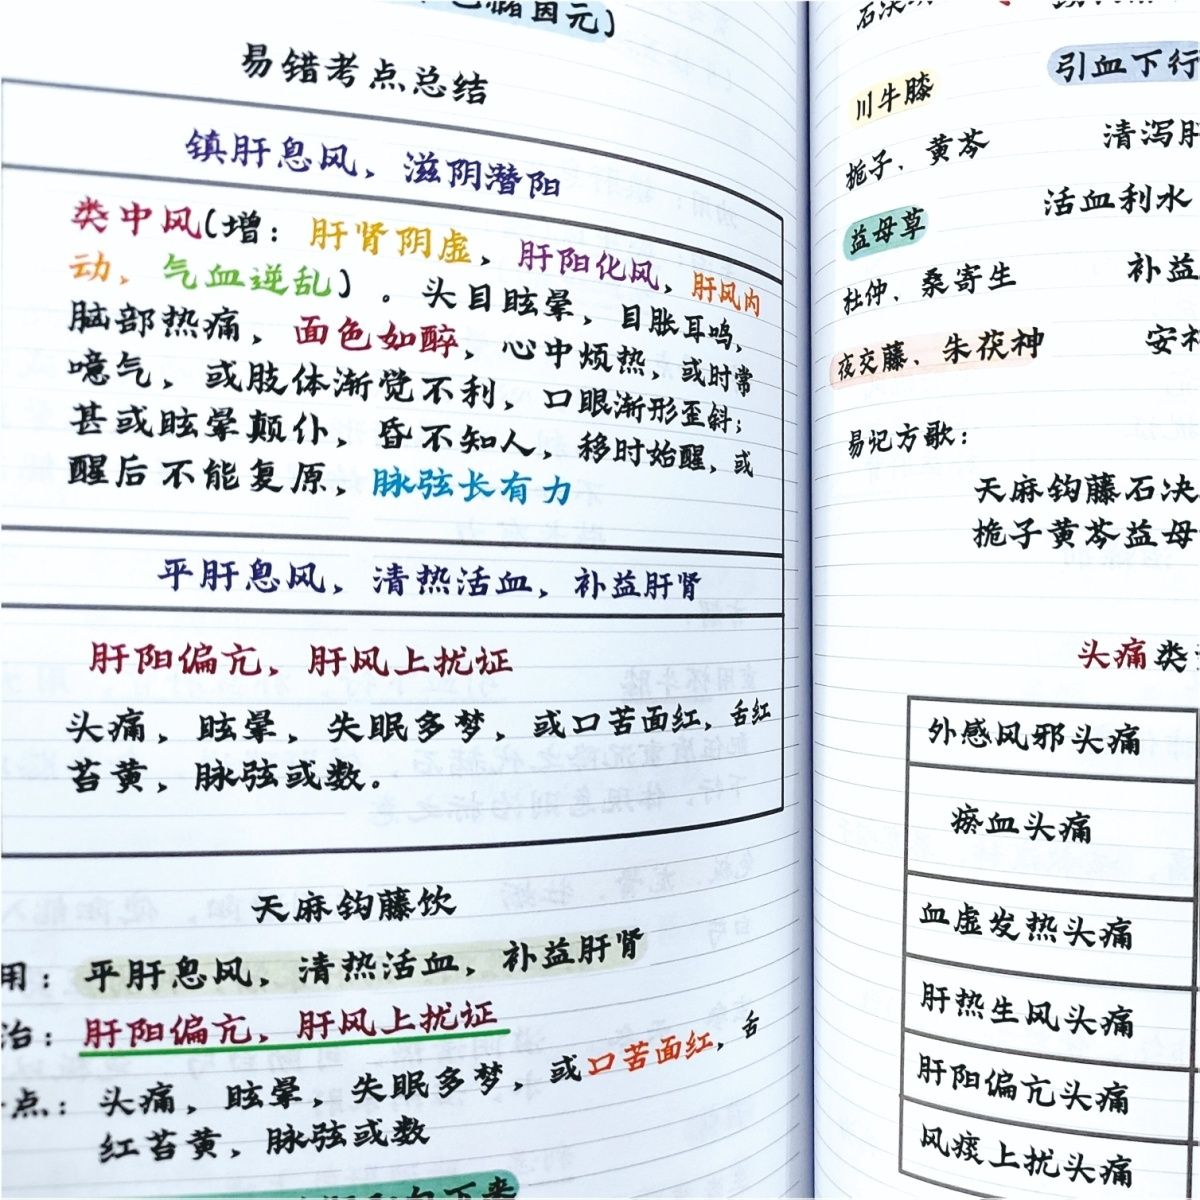 储固元)
易错考点总结
镇肝息风，滋阴潜阳
类中风(增：肝肾阴虚，肝阳化风，肝风内
动，气血逆乱)。头目眩晕，目胀耳鸣，
脑部热痛，面色如醉，心中烦热，或时常
噫气，或肢体渐觉不利，口眼渐形歪斜；
甚或眩晕颠仆，昏不知人，移时始醒，或
醒后不能复原，脉弦长有力
平肝息风，清热活血，补益肝肾
肝阳偏亢，肝风上扰证
头痛，眩晕，失眠多梦，或口苦面红，舌红
苔黄，脉弦或数。
天麻钩藤饮
用：平肝息风，清热活血，补益肝肾
治：肝阳偏亢，肝风上扰证
点：头痛，眩晕，失眠多梦，或口苦面红，舌
红苔黄，脉弦或数
石决
引血下行
川牛膝
清泻肝
栀子、黄芩
活血利水
益母草
补益
杜仲、桑寄生
安神
夜交藤、朱茯神
易记方歌：
天麻钩藤石决
栀子黄芩益母
头痛类
外感风邪头痛
瘀血头痛
血虚发热头痛
肝热生风头痛
肝阳偏亢头痛
风痰上扰头痛